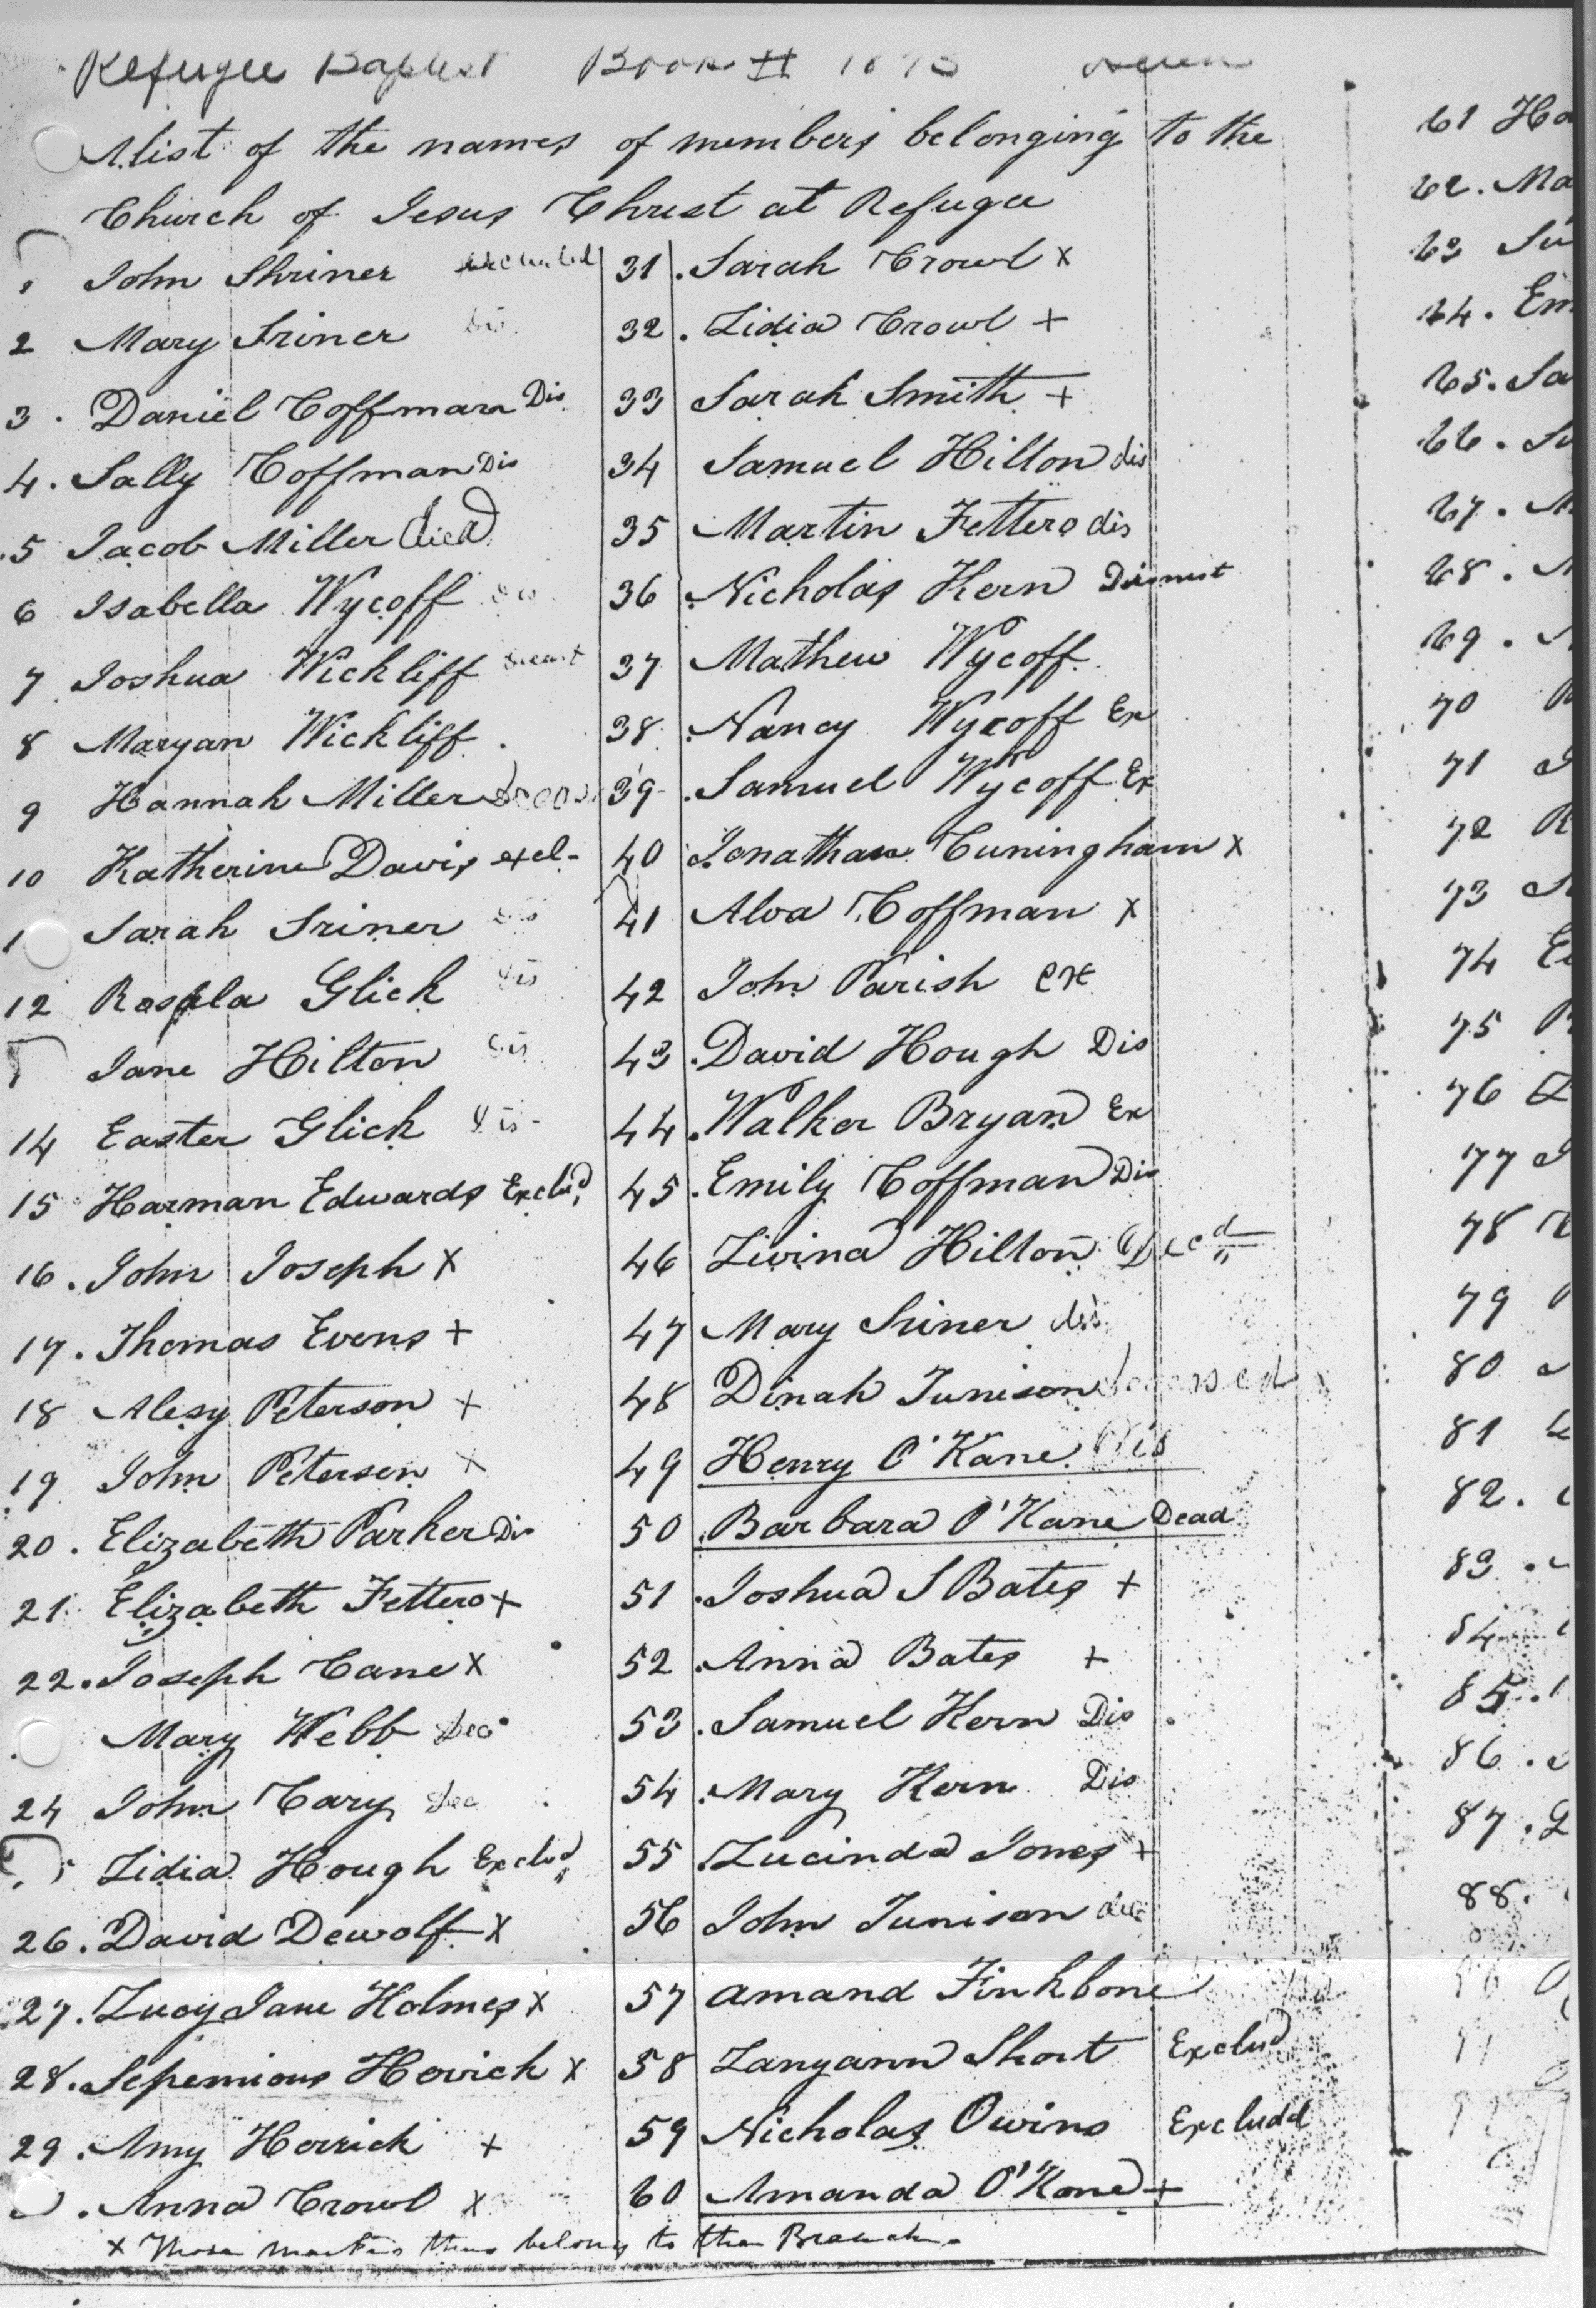 Refugee Baptist Book II
A list of the names of members belonging to the
Church of Jesus Christ at Refugee
John Shriner excluded
2 Mary Sriner dis
3. Daniel Coffman Dis
4. Sally Coffman Dis
5 Jacob Miller died
6 Isabella Wycoff dis
7 Joshua Wickliff
8 Maryan Wickliff
9 Hannah Miller
10 Katherine Davis excl-
1 Sarah Sriner dis
12 Glick dis
Jane Hilton dis
14 Easter Glick dis-
15 Harman Edwards Exclud
16. John Joseph X
17. Thomas Evens +
18 Alesy Peterson +
19 John Peterson X
20. Elizabeth Parker Dis
21 Elizabeth Fettero +
22. Joseph Cane X
Mary Webb Dec
24 John Cary Dec
Lidia Hough Exclud
26. David Dewolf X
27. Lucy Jane Holmes X
28. Hevick X
29. Amy Herrick +
Anna Crowl X
31. Sarah Crowl X
32. Lidia Crowl +
33 Sarah Smith +
34 Samuel Hilton dis
35 Martin Fettero dis
36 Nicholas Kern Dismist
37 Mathew Wycoff
38 Nancy Wycoff Ex
39 Samuel Wycoff Ex
40 Jonathan Cuningham X
41 Alva Coffman X
42 John Parish ex
43. David Hough Dis
44. Walker Bryan Ex
45. Emily Coffman Dis
46 Livina Hilton Decd
47 Mary Sriner dis
48 Dinah Tunison deceased
49 Henry O'Kane Dis
50. Barbara O'Kane Dead
51. Joshua S Bates +
52. Anna Bates +
53. Samuel Kern Dis
54. Mary Kern Dis
55. Lucinda Jones +
56 John Tunison
57 Amand Finkbone
58 Zanyann Short Exclud
59 Nicholas Owins Excludd
60 Amanda O'Kane +
X Those marked thus belong to the Branch.
61 Ha
62. Ma
63 Su
64. Em
65. Sa
66. Su
67. M
68.
69.
70
71
72 R
73
74
75
76
77
78
79
80
81
82.
83.
84
85.
86.
87.
88.